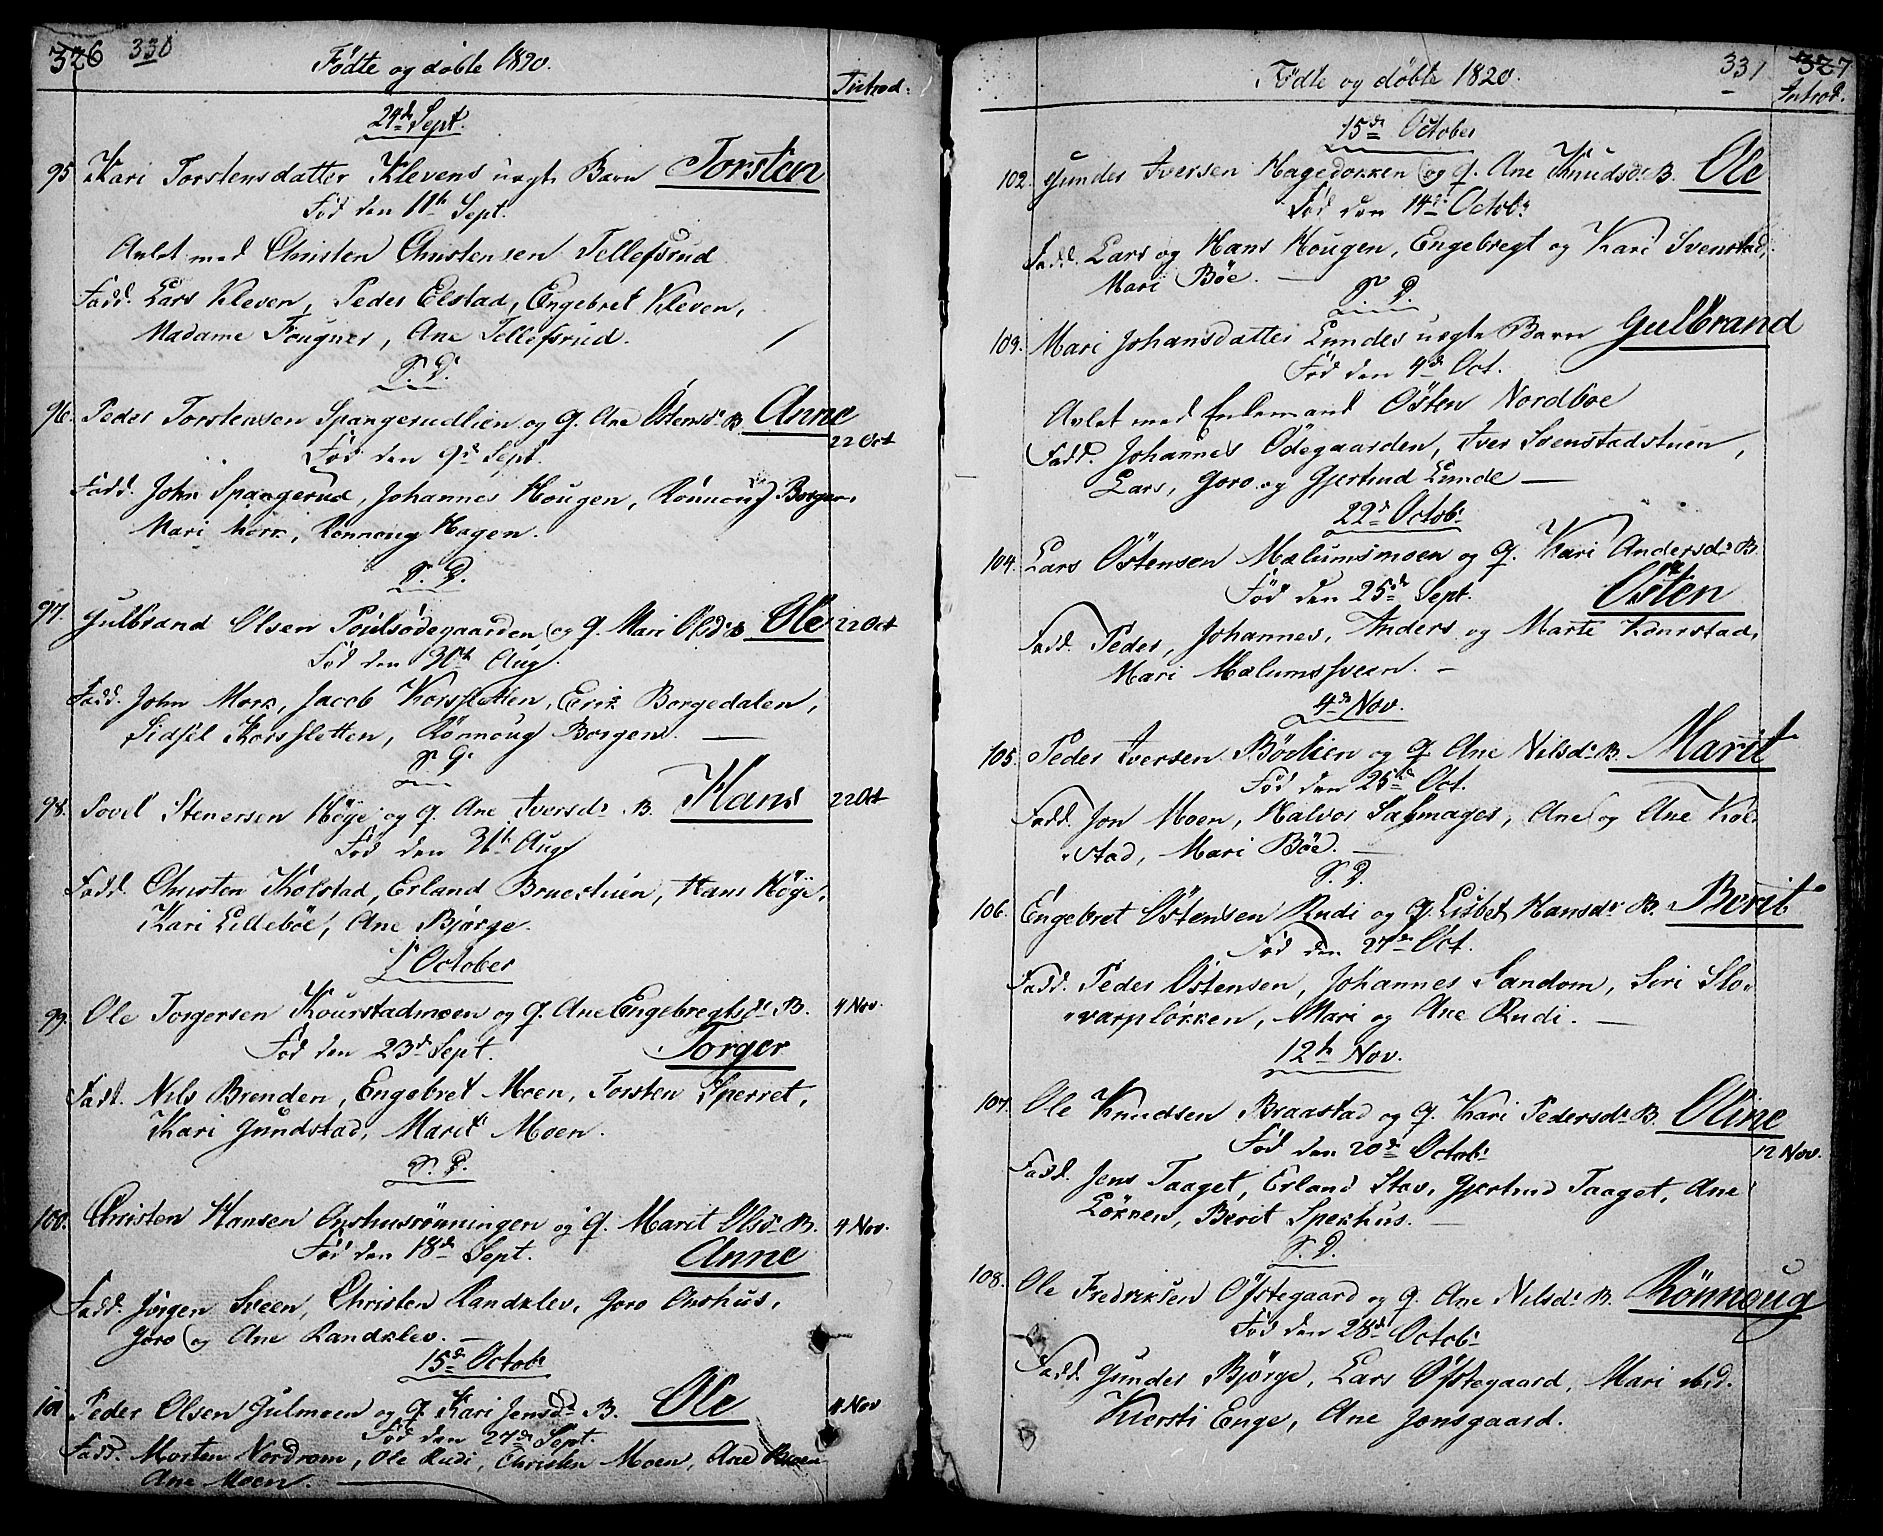 326 330
Födte og döbte 1820.
Introd.
24de Sept.
95 Kari Torstensdatter Klevens uegte Barn Torsten
Föd den 11te Sept.
Avlet med Christen Christensen Tellefsrud
Fadd. Lars Kleven, Peder Elstad, Engebret Kleven,
Madame Fougner, Ane Tellefsrud.
S. D.
96. Peder Torstensen Spangerudlien og q. Ane Östensd. B. Anne
22 Oct
Föd den 9de Sept.
Fadd. John Spangerud, Johannes Hougen, Rönnoug Borgen,
Mari Mork, Rönnoug Hagen.
S. D.
97. Gulbrand Olsen Poulsödegaarden og q. Mari Olsd. B. Ole 22 Oct
Föd den 30te Aug.
Fadd. John Mork, Jacob Korssletten, Erik Borgedalen,
Sidsel Korssletten, Rönnoug Borgen.
S. D.
98. Povel Stenersen Höye og q. Ane Iversd. B. Hans 22 Oct
Föd den 31te Aug
Fadd. Christen Kolstad, Erland Bruestuen, Hans Höye,
Kari Lilleböe, Ane Bjørge.
1 October
99. Ole Torgersen Kourstadmoen og q. Ane Engebregtsd. B. 4 Nov.
Föd den 23de Sept. Torger
Fadd. Nils Brenden, Engebret Moen, Torsten Sperret,
Kari Gundstad, Marit Moen.
S. D.
100. Christen Hansen Onshusrönningen og q. Marit Olsd. B. 4 Nov.
Föd den 18de Sept. Anne
Fadd. Jörgen Sveen, Christen Randklev, Goro Onshus,
Goro og Ane Randklev.
15de Octob.
101 Peder Olsen Julmoen og q. Kari Jensd. B. Ole 4 Nov
Föd den 27de Sept.
Fadd. Morten Nordrom, Ole Rudi, Christen Moen, Ane Moen
Ane Moen.
Födte og döbte 1820.
331 327
Introd.
15de October
102. Gunder Iversen Hagedokken og q. Ane Knudsd. B. Ole
Föd den 14de Octob.
Fadd. Lars og Hans Hougen, Engebregt og Kari Svenstad,
Mari Böe.
S. D.
103. Mari Johansdatter Lundes uegte Barn Gulbrand
Föd den 9de Oct.
Avlet med Enkemand Östen Nordboe
Fadd. Johannes Ödegaarden, Iver Svenstadstuen,
Lars, Goro og Gjertrud Lunde
22de Octob.
104. Lars Östensen Mælumsmoen og q. Kari Andersd. B.
Föd den 25de Sept. Östen
Fadd. Peder, Johannes, Anders og Marte Kourstad,
Mari Mælumssveen.
4de Nov.
105. Peder Iversen Bövlien og q. Ane Nilsd. B. Marit
Föd den 25de Oct.
Fadd. Jon Moen, Halvor Salmager, Ane og Ane Kol-
stad, Mari Böe.
S. D.
106. Engebret Östensen Rudi og q. Lisbet Hansd. B. Berit
Föd den 27de Oct.
Fadd. Peder Östensen, Johannes Sandom, Siri Slo-
varplökken, Mari og Ane Rudi.
12te Nov.
107. Ole Knudsen Braastad og q. Kari Pedersd. B. Oline
Föd den 20de Octob. 12 Nov.
Fadd. Jens Taaget, Erland Stav, Gjertrud Taaget, Ane
Lökken, Berit Spekhus.
S. D.
108. Ole Fredriksen Östegaard og q. Ane Nilsd. B. Rönnoug
Föd den 28de Octob.
Fadd. Gunder Bjørge, Lars Östegaard, Mari ibid.
Kiersti Enge, Ane Jonsgaard.